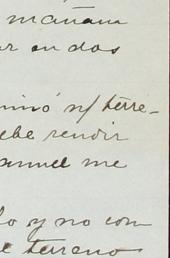 mañana
ar en dos
mino s/ terre-
ebe rendir
anuel me
lo y no com
e terreno